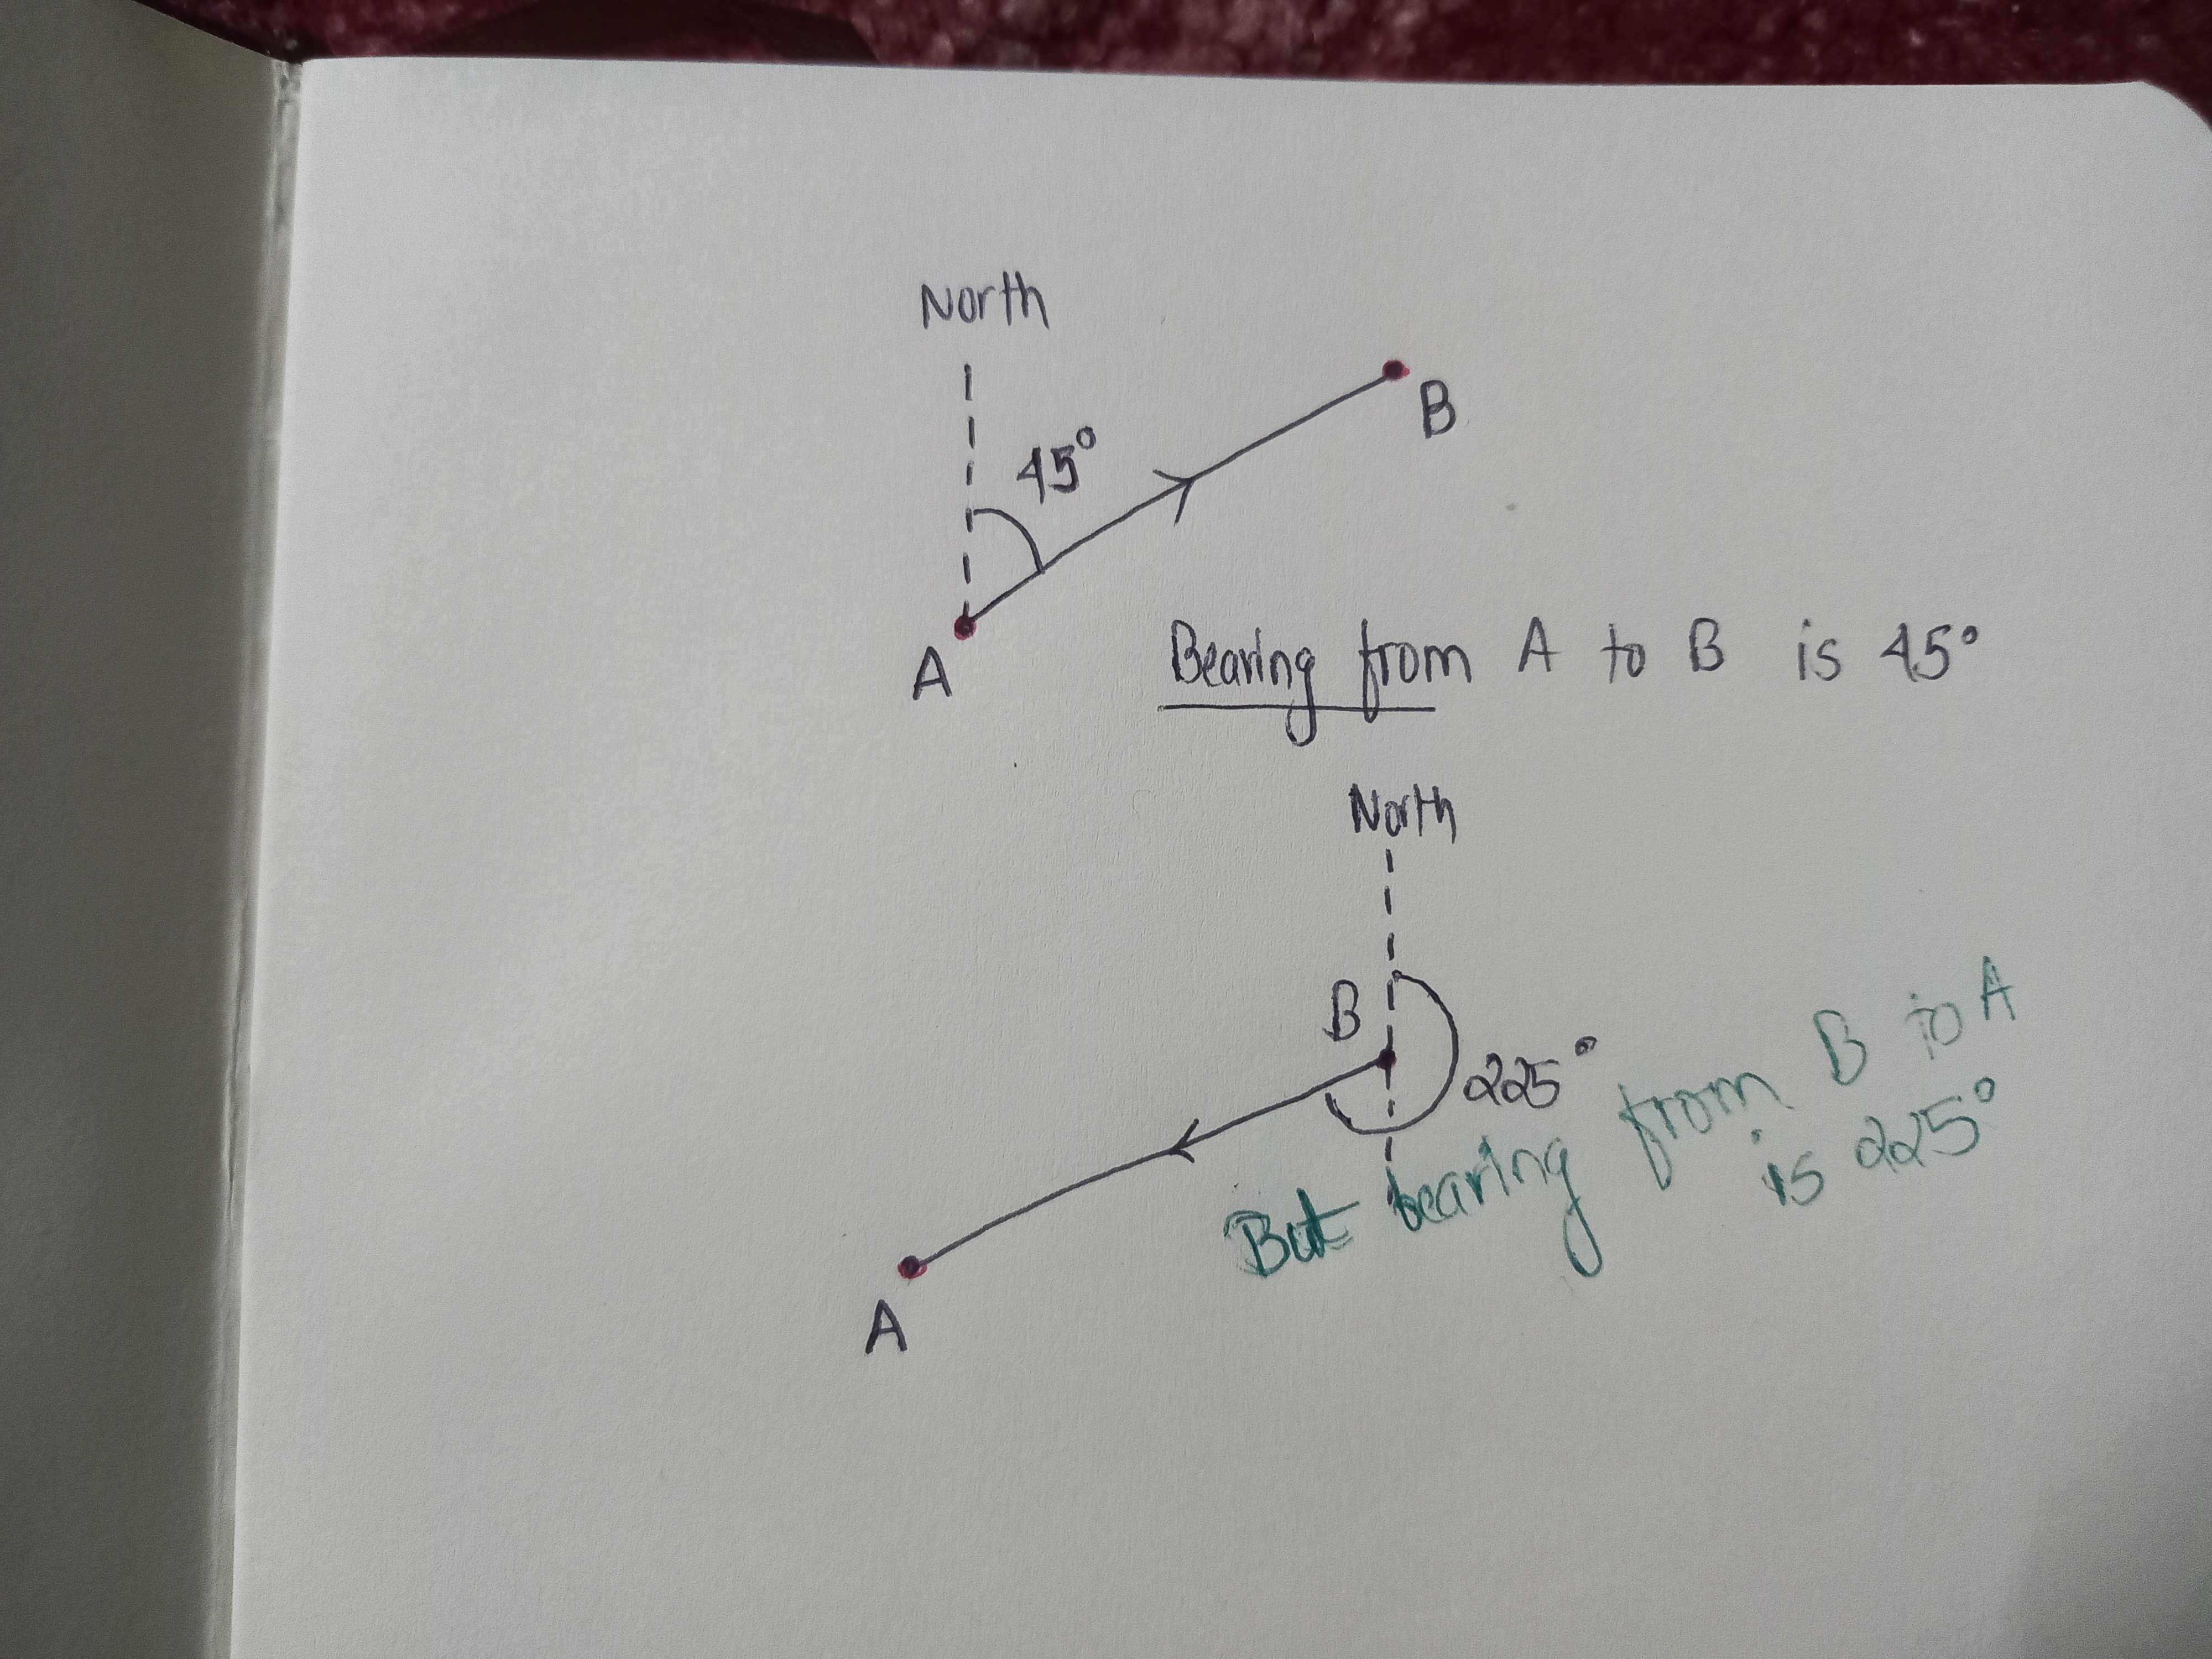 North
45°
B
A
Bearing from A to B is 45°
North
B
225°
But bearing from B to A
is 225°
A